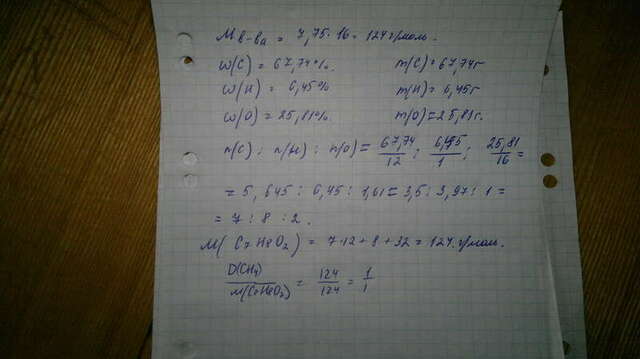 Mв-ва = 7,75·16 = 124 г/моль.
w(C) = 67,74%. m(C)=67,74г
w(H) = 6,45% m(H)=6,45г
w(O) = 25,81% m(O)=25,81г.
n(C) : n(H) : n(O) = 67,74/12 ; 6,45/1 ; 25,81/16 =
= 5,645 : 6,45 : 1,61 = 3,5 : 3,97 : 1 =
= 7 : 8 : 2.
M(C7H8O2) = 7·12+8+32 = 124 г/моль.
D(CH4)/M(C7H8O2) = 124/124 = 1/1